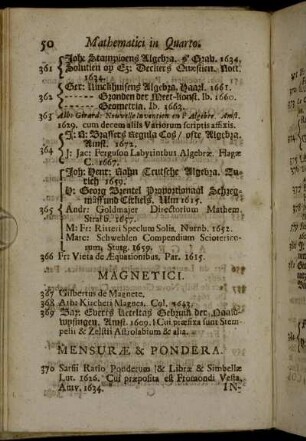 50 Mathematici in Quarto.
Joh: Stampioens Algebra. s' Grav. 1634.
361 Solutien op Ez: Deckers Questien. Rott.
1634.
Ger: Kinckhuisens Algebra. Haarl. 1661.
362 Gronden der Meet-konst. Ib. 1660.
Geometria. Ib. 1663.
363 Alb. Girard: Nouvelle invention en l' Algebre. Amst.
1629. cum decem aliis Variorum scriptis affixis.
J: R: Brassers Regula Cos, ofte Algebra.
Amst. 1672.
364 J: Jac: Ferguson Labyrinthus Algebræ. Hagæ
C. 1667.
Joh: Henr: Rahn Teutsche Algebra. Zurich 1659.
H: Georg Brentel Proportional Schregmass und Circkels. Ulm 1615.
365 Andr: Goldmajer Directorium Mathem.
Strasb. 1657.
M: Fr: Ritteri Speculum Solis. Nurnb. 1652.
Marc: Schwehlen Compendium Sciotericorum, Stutg. 1659.
366 Fr: Vieta de Æquationibus. Par. 1615.
MAGNETICI.
367 Gilbertus de Magnete.
368 Ath: Kircheri Magnes. Col. 1643.
369
Amst. 1609. Cui præfixa sunt
& Astrolabium & alia.
MENSURÆ & PONDERA.
370 Sarsii Ratio Ponderum Libræ & Simbellæ
Lut. 1626. Cui præposita est Fromondi Vesta.
Antv. 1634.
IN-